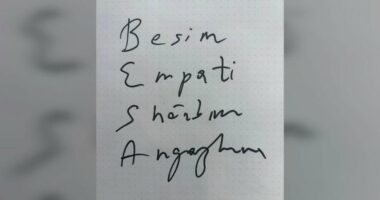 Besim
Empati
Shërim
Angazhim